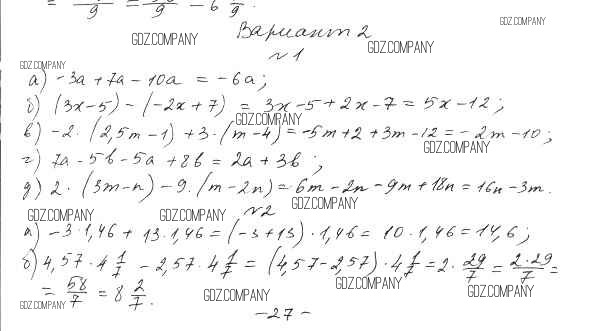 = 9 = 9 - 6 9.
GDZ.COMPANY
Вариант 2
GDZ.COMPANY GDZ.COMPANY
№1
GDZ.COMPANY
а) -3a + 7a - 10a = -6a;
б) (3x-5) - (-2x+7) = 3x-5+2x-7 = 5x-12;
GDZ.COMPANY
в) -2·(2,5m-1) + 3·(m-4) = -5m+2+3m-12 = -2m-10;
GDZ.COMPANY
г) 7a - 5b - 5a + 8b = 2a + 3b;
д) 2·(3m-n) - 9·(m-2n) = 6m-2n-9m+18n = 16n-3m.
GDZ.COMPANY
GDZ.COMPANY GDZ.COMPANY №2
а) -3·1,46 + 13·1,46 = (-3+13)·1,46 = 10·1,46 = 14,6;
б) 4,57·4 1/7 - 2,57·4 1/7 = (4,57-2,57)·4 1/7 = 2·29/7 = 2·29/7 =
GDZ.COMPANY
= 58/7 = 8 2/7.
GDZ.COMPANY GDZ.COMPANY
GDZ.COMPANY
-27-